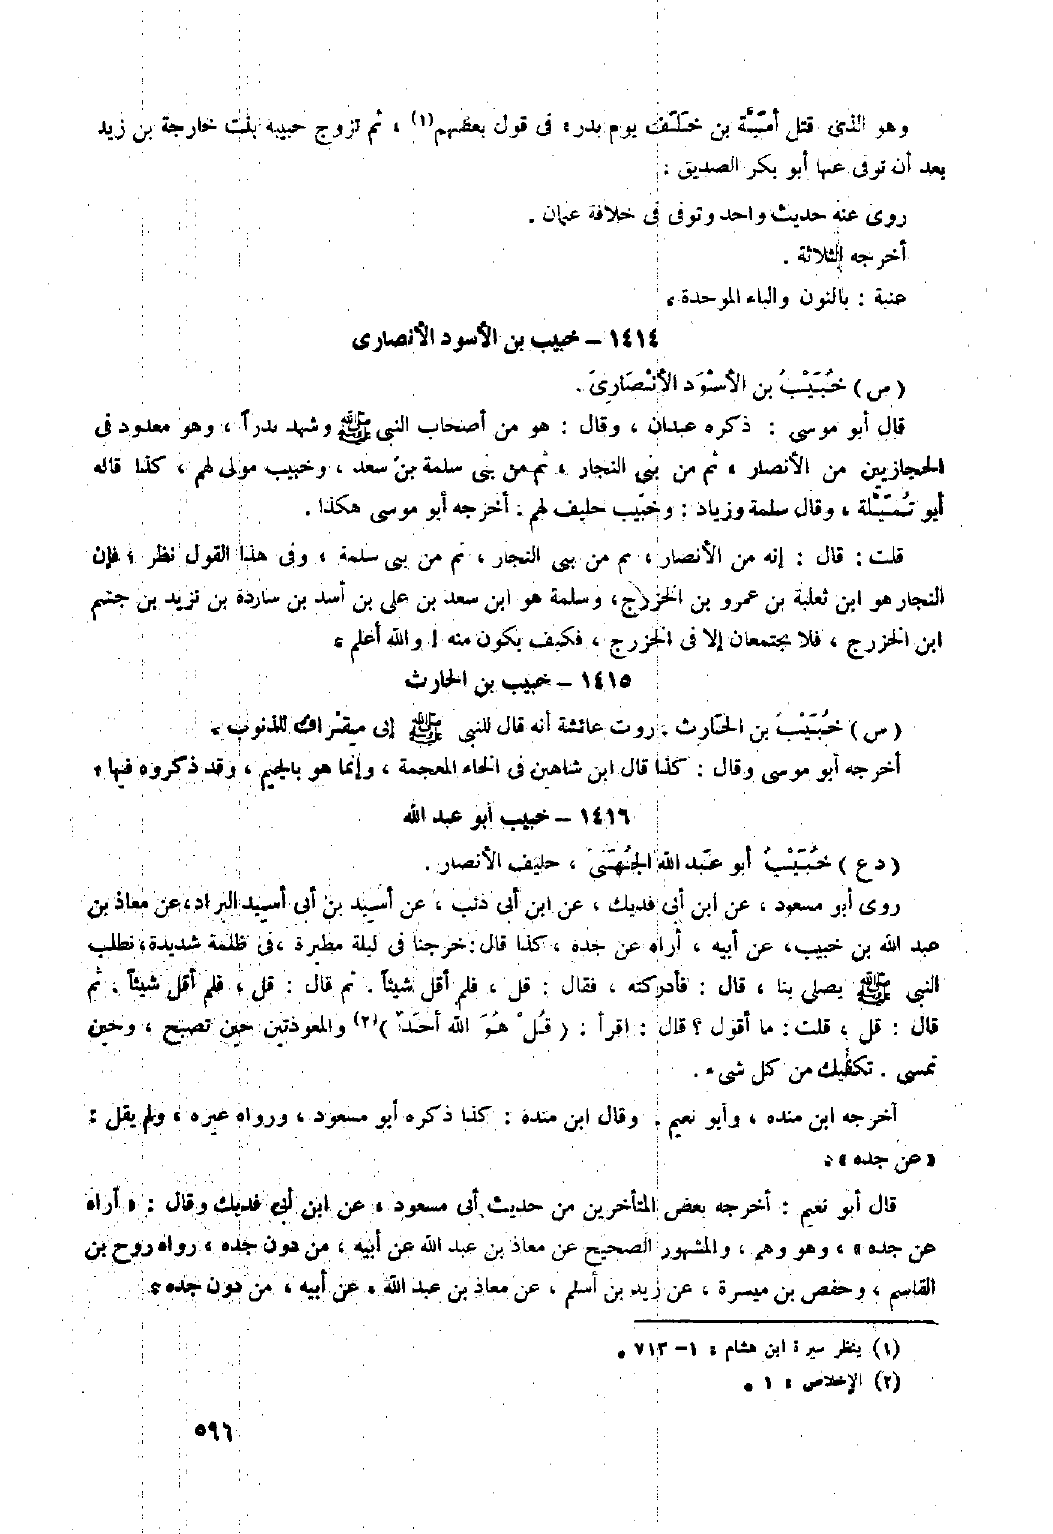 وهو الذى قتل أمَيَّة بن خَلَف يوم بدر، فى قول بعضهم(١) ، ثم تزوج حبيبة بنت خارجة بن زيد
بعد أن توفى عنها أبو بكر الصديق :
روى عنه حديث واحد وتوفى فى خلافة عثمان .
أخرجه الثلاثة .
عنبة : بالنون والباء الموحدة ،
١٤١٤ – خبيب بن الأسود الأنصارى
( س ) خُبَيْبُ بن الأسْوَد الأنْصَارِىّ .
قال أبو موسى : ذكره عبدان ، وقال : هو من أصحاب النبى ﷺ وشهد بدراً ، وهو معدود فى
الحجازيين من الأنصار ، ثم من بنى النجار ، ثم من بنى سلمة بن سعد ، وخبيب مولى لهم ، كذا قاله
أبو تُمَيْلَة ، وقال سلمة وزياد : وخبيب حليف لهم . أخرجه أبو موسى هكذا .
قلت : قال : إنه من الأنصار ، ثم من بنى النجار ، ثم من بنى سلمة ، وفى هذا القول نظر ؛ فإن
النجار هو ابن ثعلبة بن عمرو بن الخزرج، وسلمة هو ابن سعد بن على بن أسد بن ساردة بن تزيد بن جشم
ابن الخزرج ، فلا يجتمعان إلا فى الخزرج ، فكيف يكون منه ! والله أعلم ،
١٤١٥ – خبيب بن الحارث
( س ) خُبَيْبَ بن الحَارِث . روت عائشة أنه قال للنبى ﷺ إنى مِقْرَاف للذنوب .
أخرجه أبو موسى وقال : كذا قال ابن شاهين فى الخاء المعجمة ، وإنما هو بالجيم ، وقد ذكروه فيها ؛
١٤١٦ – خبيب أبو عبد الله
( د ع ) خُبَيْبُ أبو عَبْد الله الجُهَنىّ ، حليف الأنصار .
روى أبو مسعود ، عن ابن أبى فديك ، عن ابن أبى ذئب ، عن أسيد بن أبى أسيد البراد، عن معاذ بن
عبد الله بن خبيب، عن أبيه ، أراه عن جده ، كذا قال: خرجنا فى ليلة مطيرة ، فى ظلمة شديدة، نطلب
النبى ﷺ يصلى بنا ، قال : فأدركته ، فقال : قل ، فلم أقل شيئاً . ثم قال : قل ، فلم أقل شيئاً . ثم
قال : قل ، قلت : ما أقول ؟ قال : اقرأ : ( قُلْ هُوَ اللهُ أحَدٌ )(٢) والمعوذتين حين تصبح ، وحين
تمسى . تكفيك من كل شىء .
أخرجه ابن منده ، وأبو نعيم . وقال ابن منده : كذا ذكره أبو مسعود ، ورواه غيره ، ولم يقل :
« عن جده » .
قال أبو نعيم : أخرجه بعض المتأخرين من حديث أبى مسعود ، عن ابن أبى فديك وقال : « أراه
عن جده » ، وهو وهم ، والمشهور الصحيح عن معاذ بن عبد الله عن أبيه ، من دون جده ، رواه روح بن
القاسم ، وحفص بن ميسرة ، عن زيد بن أسلم ، عن معاذ بن عبد الله ، عن أبيه ، من دون جده .
(١) ينظر سيرة ابن هشام : ١– ٧١٣ .
(٢) الإخلاص : ١ .
٥٩٦